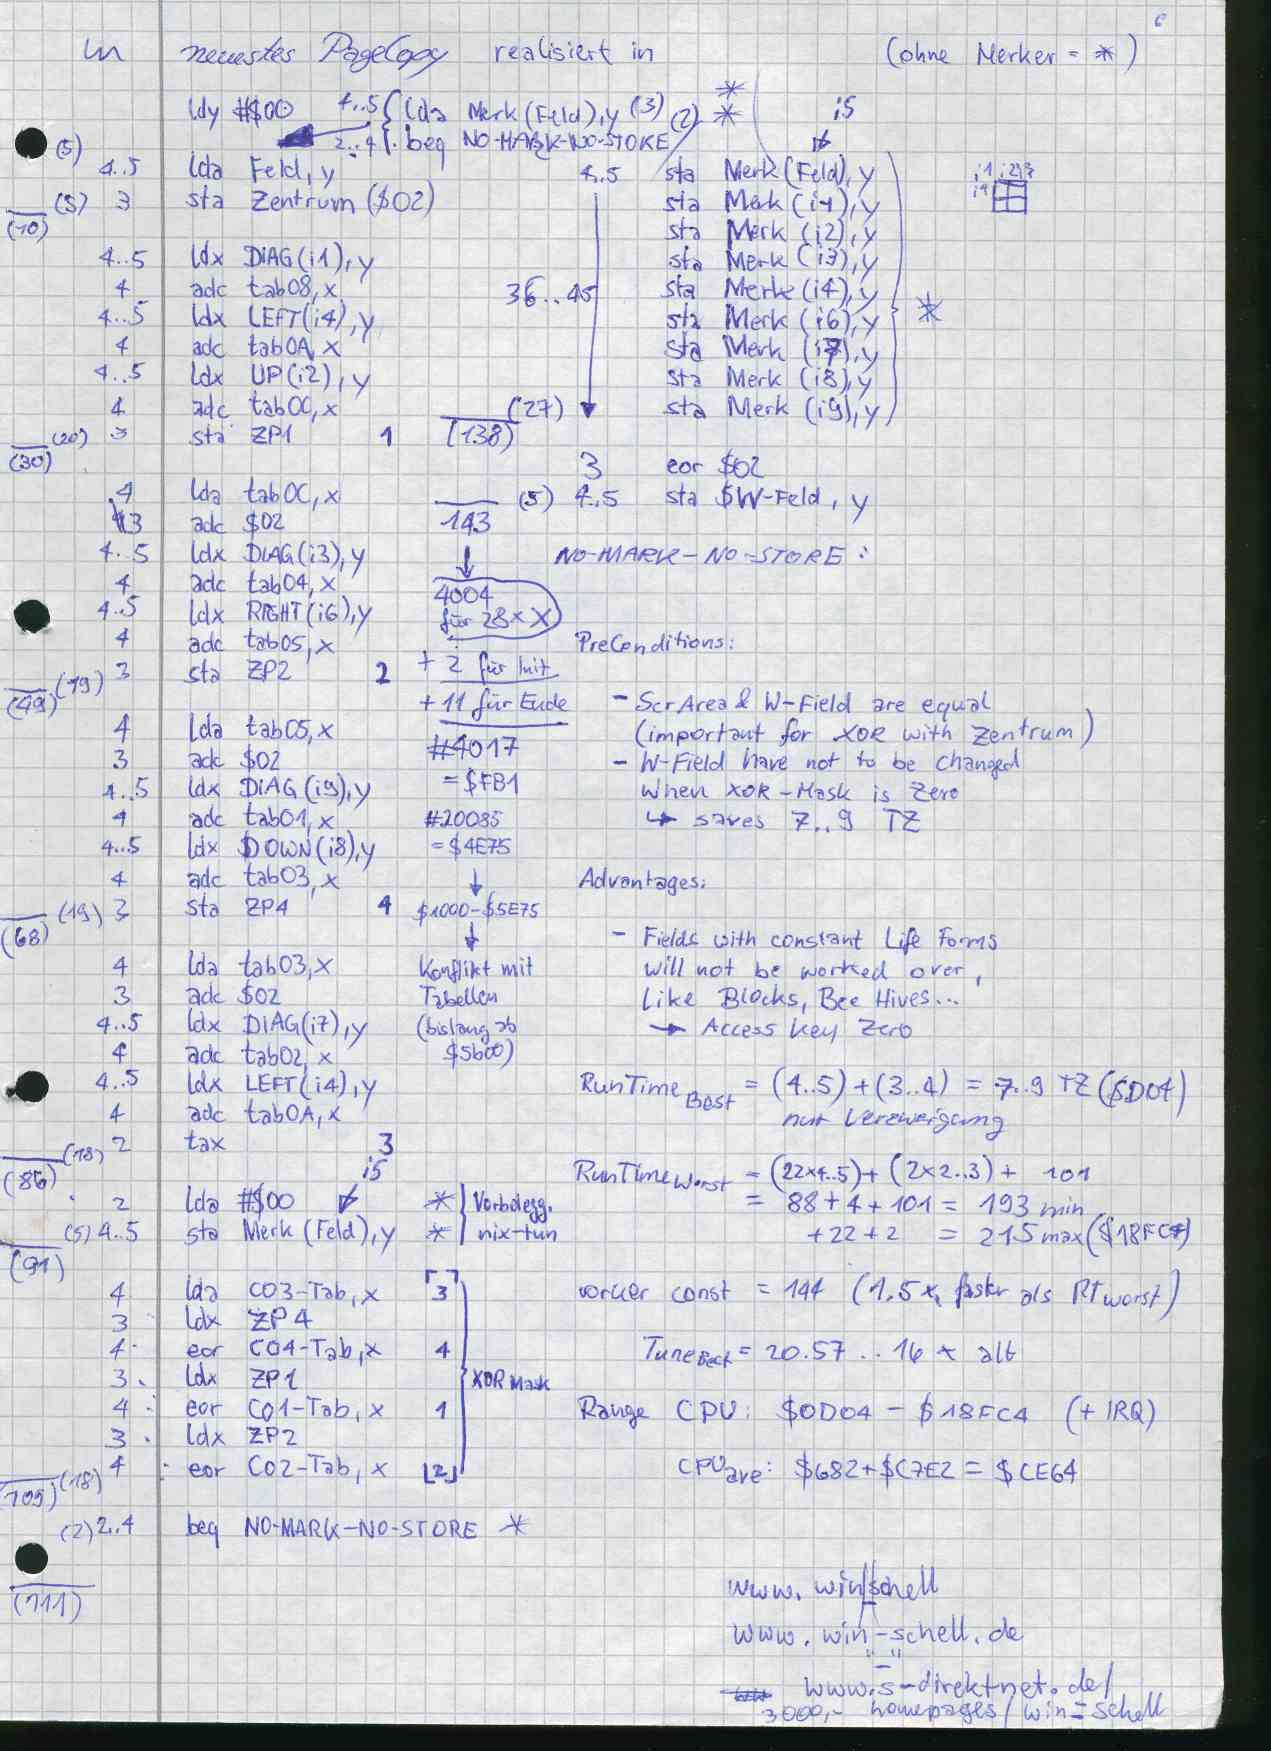 6
in neuestes PageCopy realisiert in (ohne Merker = *)
ldy #$00 4..5 { lda Merk (Feld), y (3) *
2..4 beq NO-MARK-NO-STORE (2) * i5
(5) 4..5 lda Feld, y
(3) 3 sta Zentrum ($02)
(10)
4..5 ldx DIAG(i1), y
4 adc tab08, x
4..5 ldx LEFT(i4), y
4 adc tab0A, x
4..5 ldx UP(i2), y
4 adc tab0C, x
(20) 3 sta ZP1 1
(30)
4 lda tab0C, x
3 adc $02
4..5 ldx DIAG(i3), y
4 adc tab04, x
4..5 ldx RIGHT(i6), y
4 adc tab05, x
(19) 3 sta ZP2 2
(49)
4 lda tab05, x
3 adc $02
4..5 ldx DIAG(i9), y
4 adc tab01, x
4..5 ldx DOWN(i8), y
4 adc tab03, x
(19) 3 sta ZP4 4
(68)
4 lda tab03, x
3 adc $02
4..5 ldx DIAG(i7), y
4 adc tab02, x
4..5 ldx LEFT(i4), y
4 adc tab0A, x
(18) 2 tax 3
(86) i5
2 lda #$00 * Vorbelegg.
(5) 4..5 sta Merk (Feld), y * nix-tun
(91)
4 lda C03-Tab, x [3]
3 ldx ZP4
4 eor C04-Tab, x 4
3 ldx ZP1 XOR Mask
4 eor C01-Tab, x 1
3 ldx ZP2
(18) 4 eor C02-Tab, x [2]
(109)
(2) 2..4 beq NO-MARK-NO-STORE *
(111)
4..5 sta Merk (Feld), y
sta Merk (i1), y
sta Merk (i2), y
sta Merk (i3), y
36..45 sta Merk (i4), y *
sta Merk (i6), y
sta Merk (i7), y
sta Merk (i8), y
(27) sta Merk (i9), y
(138)
3 eor $02
(5) 4..5 sta $W-Feld, y
143
NO-MARK-NO-STORE:
i1 i2 i3
i4
4004
für 28x X
+ 2 für Init
+ 11 für Ende
#4017
= $FB1
#20085
= $4E75
$1000-$5E75
Konflikt mit
Tabellen
(bislang ab
$5600)
PreConditions:
- ScrArea & W-Field are equal
(important for XOR with Zentrum)
- W-Field have not to be changed
when XOR-Mask is Zero
→ saves 7..9 TZ
Advantages:
- Fields with constant Life Forms
will not be worked over,
Like Blocks, Bee Hives...
→ Access Key Zero
RunTime Best = (4..5) + (3..4) = 7..9 TZ ($D04)
nur Verzweigung
RunTime Worst = (22x4..5) + (2x2..3) + 101
= 88 + 4 + 101 = 193 min
+ 22 + 2 = 215 max ($18FC4)
vorher const = 144 (1.5x faster als RT worst)
Tune Best = 20.57 .. 16 x alt
Range CPU: $0D04 - $18FC4 (+ IRQ)
CPU ave: $682 + $C7E2 = $CE64
www. winschell
www. win-schell.de
"-"
www.s-direktnet.de/
3000,- homepages/win-schell